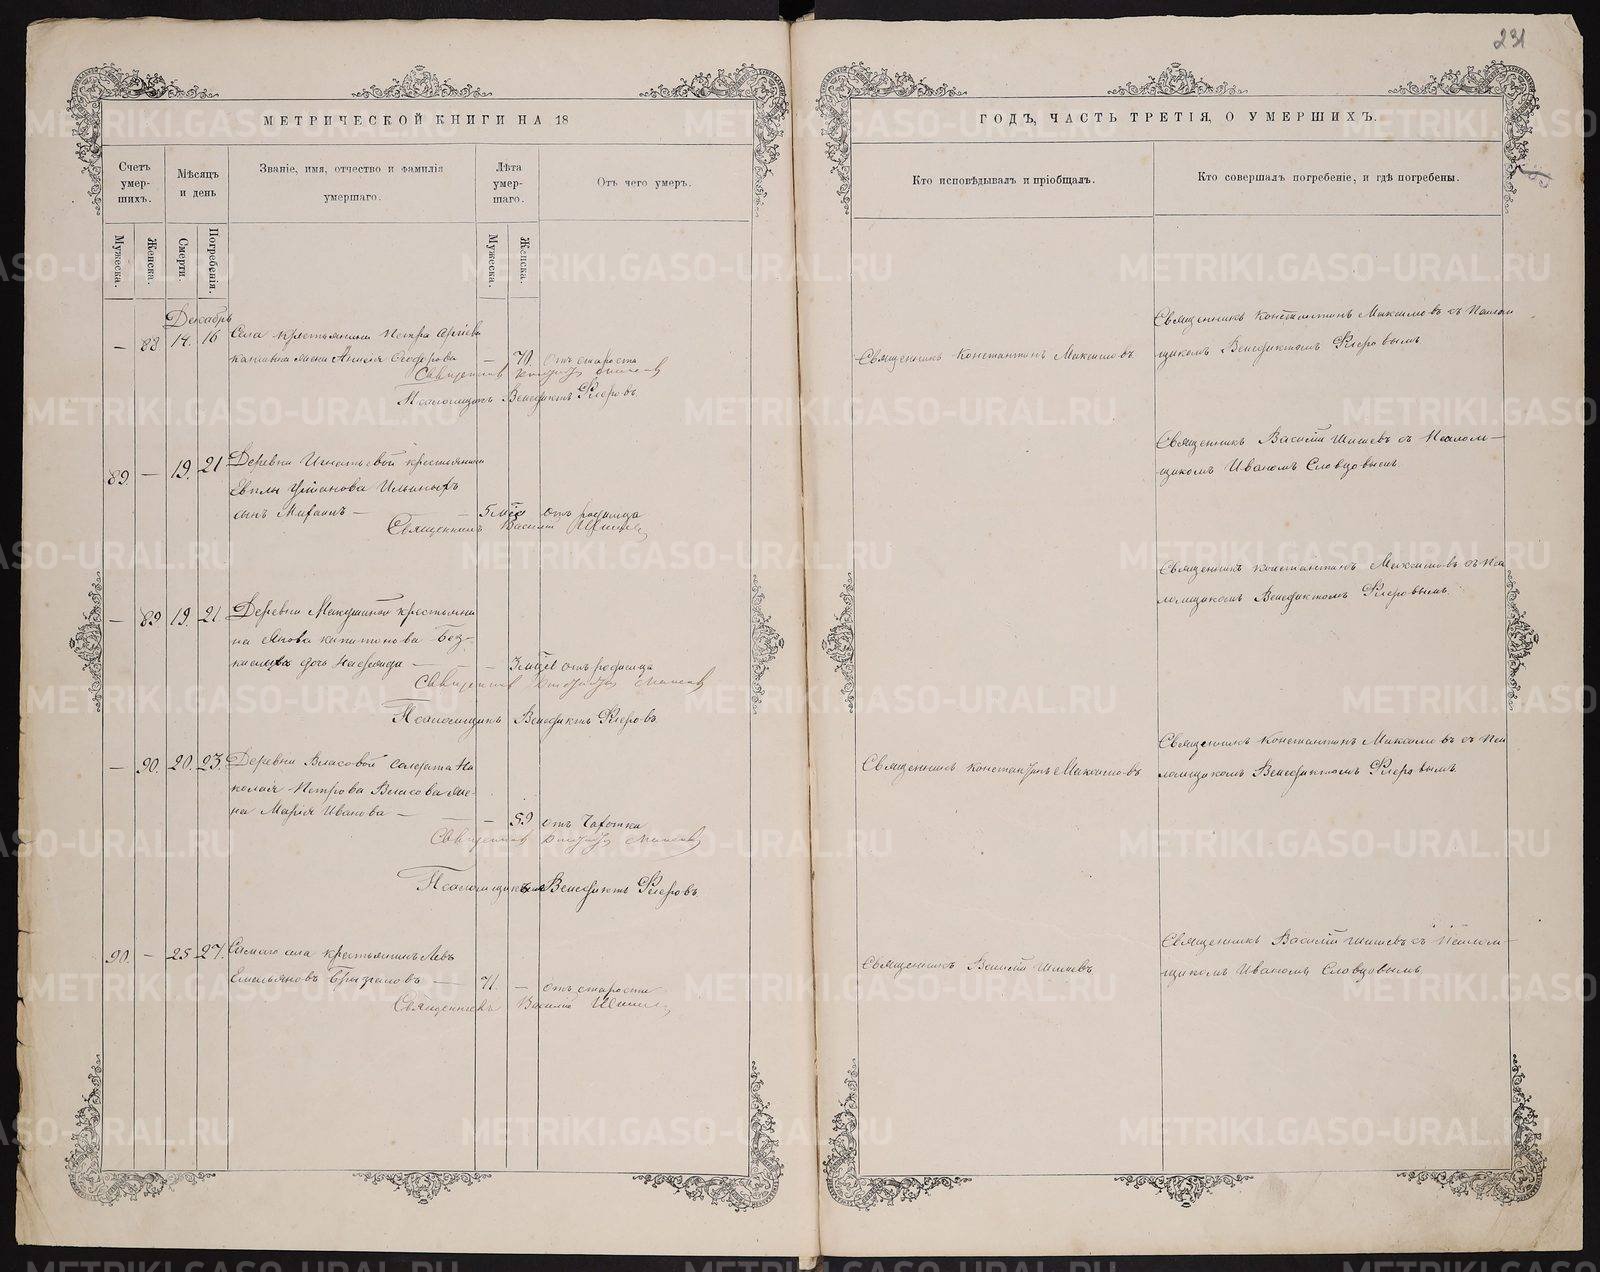 231
МЕТРИЧЕСКОЙ КНИГИ НА 18
ГОДЪ, ЧАСТЬ ТРЕТІЯ, О УМЕРШИХЪ.
Счетъ умер-шихъ.
Мѣсяцъ и день
Званіе, имя, отчество и фамилія
умершаго.
Лѣта умер-шаго.
Отъ чего умеръ.
Кто исповѣдывалъ и пріобщалъ.
Кто совершалъ погребеніе, и гдѣ погребены.
Мужеска.
Женска.
Смерти.
Погребенія.
Мужеска.
Женска.
Декабрь
— 88. 14. 16 Села крестьянина Петра
жена Анисія Феодорова — 70 отъ старости
Священникъ
Псаломщикъ Венедиктъ Флеровъ.
Священникъ Константинъ Максимовъ
Священникъ Константинъ Максимовъ съ Псалом
щикомъ Венедиктомъ Флеровымъ
89. — 19. 21 Деревни Игнатьевой крестьянина
Ильиныхъ
сынъ Михаилъ — 5 мѣс отъ родимца
Священникъ Василій Шишевъ
Священникъ Василій Шишевъ съ Псалом—
щикомъ Иваномъ Словцовымъ
— 89 19. 21. Деревни Макушиной крестьяни
на Якова Капитонова Без-
дочь — — отъ родимца
Священникъ
Псаломщикъ Венедиктъ Флеровъ
Священникъ Константинъ Максимовъ съ Пса
ломщикомъ Венедиктомъ Флеровымъ.
— 90. 20. 23. Деревни Власовой солдата Ни
колая Петрова Власова же-
на Марія Иванова — — 59 отъ чахотки
Священникъ
Псаломщикъ Венедиктъ Флеровъ.
Священникъ Константинъ Максимовъ
Священникъ Константинъ Максимовъ съ Пса
ломщикомъ Венедиктомъ Флеровымъ.
90. — 25 27. Самаго села крестьянинъ Левъ
Емельяновъ — 71. — отъ старости
Священникъ Василій Шишевъ
Священникъ Василій Шишевъ
Священникъ Василій Шишевъ съ Псалом—
щикомъ Иваномъ Словцовымъ
METRIKI.GASO-URAL.RU